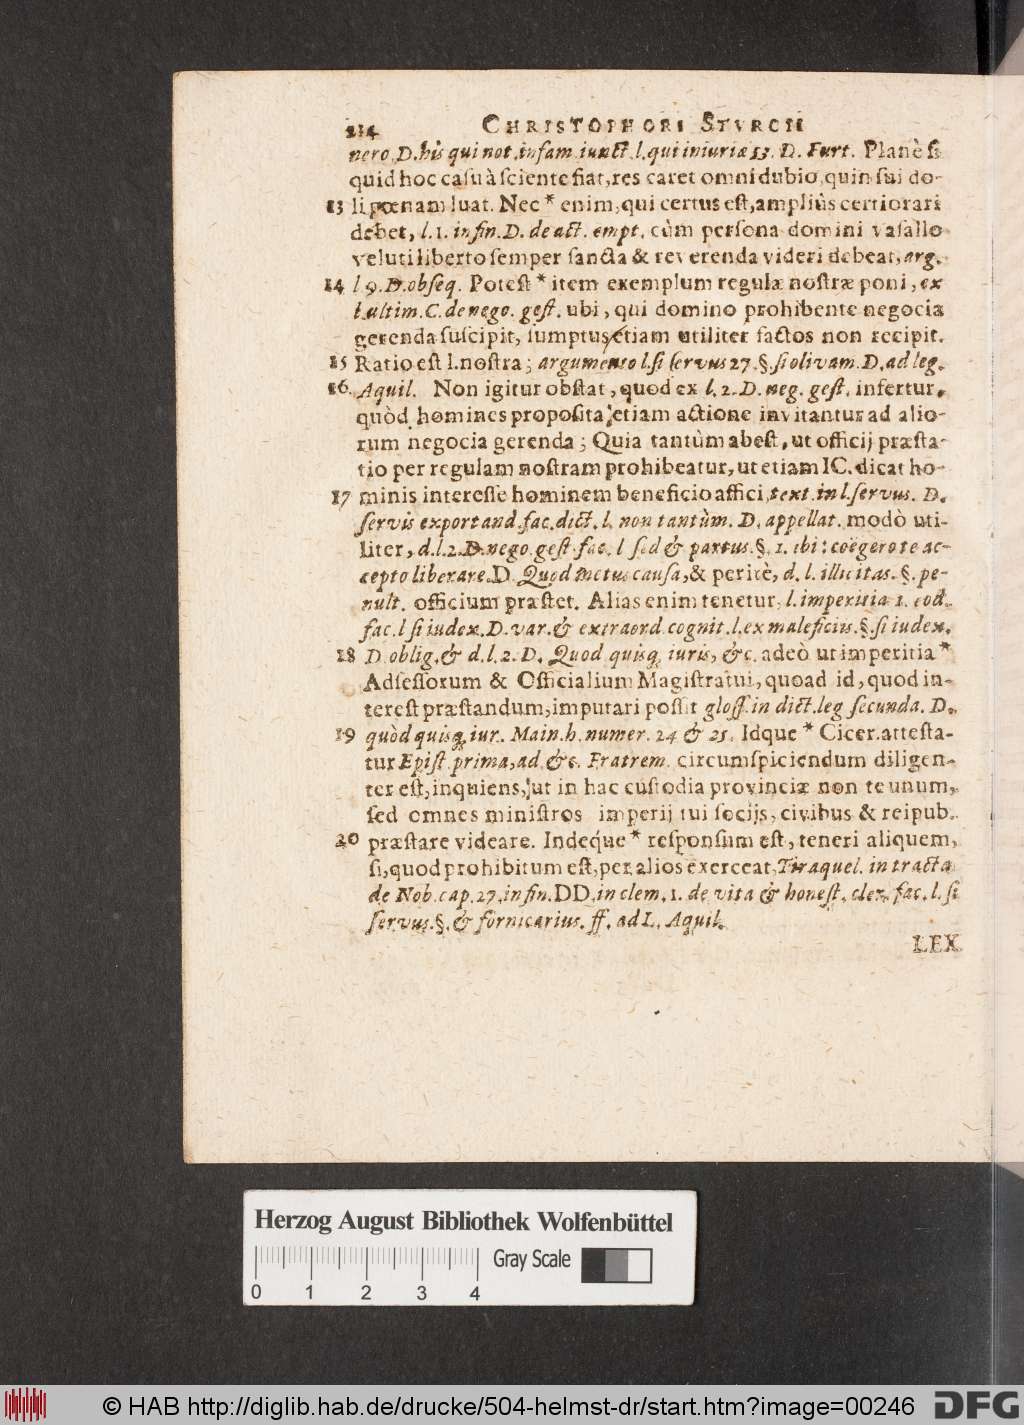 214 CHRISTOPHORI STVRCII
nero. D. his qui not. infam. iunct. l. qui iniuriæ 53. D. Furt. Planè si
quid hoc casu à sciente fiat, res caret omni dubio, quin sui do-
13 li pœnam luat. Nec * enim, qui certus est, ampliùs certiorari
debet, l. 1. in fin. D. de act. empt. cùm persona domini vasallo
veluti liberto semper sancta & reverenda videri debeat, arg.
14 l 9. D. obseq. Potest * item exemplum regulæ nostræ poni, ex
l. ultim. C. de nego. gest. ubi, qui domino prohibente negocia
gerenda suscipit, sumptus etiam utiliter factos non recipit.
15 Ratio est l. nostra; argumento l. si servus 27. §. si olivam. D. ad leg.
16. Aquil. Non igitur obstat, quod ex l. 2. D. neg. gest. infertur,
quòd homines proposita etiam actione invitantur ad alio-
rum negocia gerenda; Quia tantùm abest, ut officij præsta-
tio per regulam nostram prohibeatur, ut etiam IC. dicat ho-
17 minis interesse hominem beneficio affici, text. in l. servus. D.
servis exportand. fac. dict. l. non tantùm. D. appellat. modò uti-
liter, d. l. 2. D. nego. gest. fac. l sed & partus. §. 1. ibi: coëgero te ac-
cepto liberare. D. Quod metus causa, & peritè, d. l. illicitas. §. pe-
nult. officium præstet. Alias enim tenetur, l. imperitia 1. eod.
fac. l si iudex. D. var. & extraord. cognit. l. ex maleficiis. §. si iudex.
18 D. oblig. & d. l. 2. D. Quod quisq; iuris, &c. adeò ut imperitia *
Adsessorum & Officialium Magistratui, quoad id, quod in-
terest præstandum, imputari possit gloss. in dict. leg secunda. D.
19 quòd quisq; iur. Main. h. numer. 24 & 25. Idque * Cicer. attesta-
tur Epist. prima, ad &c. Fratrem. circumspiciendum diligen-
ter est, inquiens, ut in hac custodia provinciæ non te unum,
sed omnes ministros imperij tui socijs, civibus & reipub.
20 præstare videare. Indeque * responsum est, teneri aliquem,
si, quod prohibitum est, per alios exerceat, Tiraquel. in tracta
de Nob. cap. 27. in fin. DD. in clem. 1. de vita & honest. cler. fac. l. si
servus. §. & fornicarius. ff. ad L. Aquil.
LEX
Herzog August Bibliothek Wolfenbüttel
Gray Scale
0 1 2 3 4
© HAB http://diglib.hab.de/drucke/504-helmst-dr/start.htm?image=00246
DFG